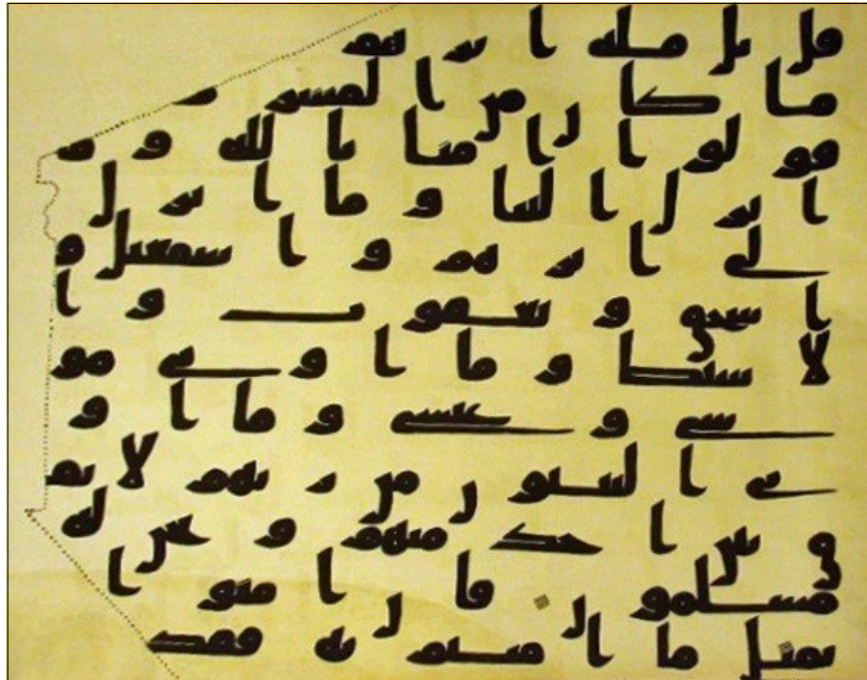 قل بل ملة ابرهم
ما كان من المشر
قولوا امنا بالله و م
ا انزل الينا و ما انزل
لى ابرهم و اسمعيل و
اسحق و يعقوب و ا
لاسبط و ما اوتى مو
سى و عيسى و ما او
تى النبيون من ربهم لا نف
ق بين احد منهم و نحن له
مسلمون فان امنوا
بمثل ما امنتم به فقد